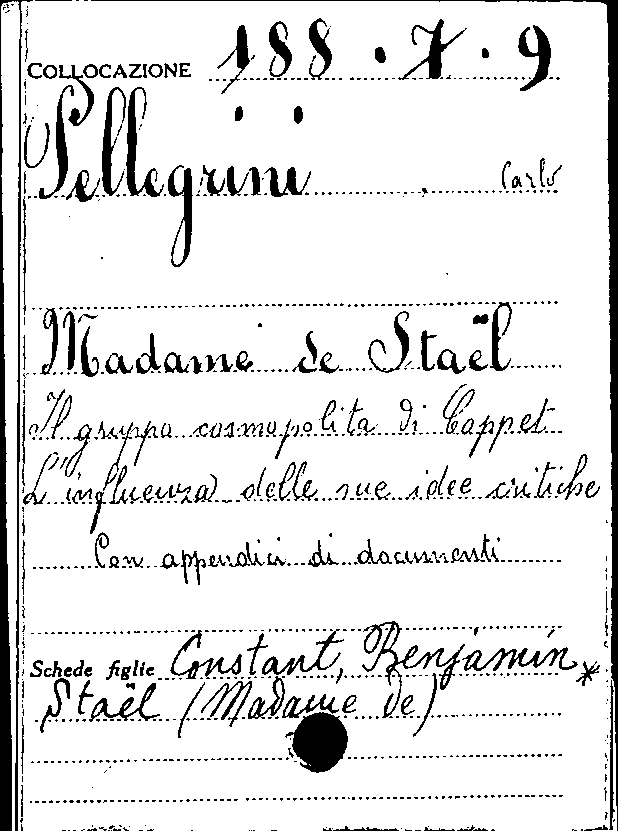 COLLOCAZIONE 188.7.9
Pellegrini Carlo
Madame de Staël
Il gruppo cosmopolita di Coppet
L'influenza delle sue idee critiche
Con appendici di documenti
Schede figlie Constant, Benjamin *
Staël (Madame de)